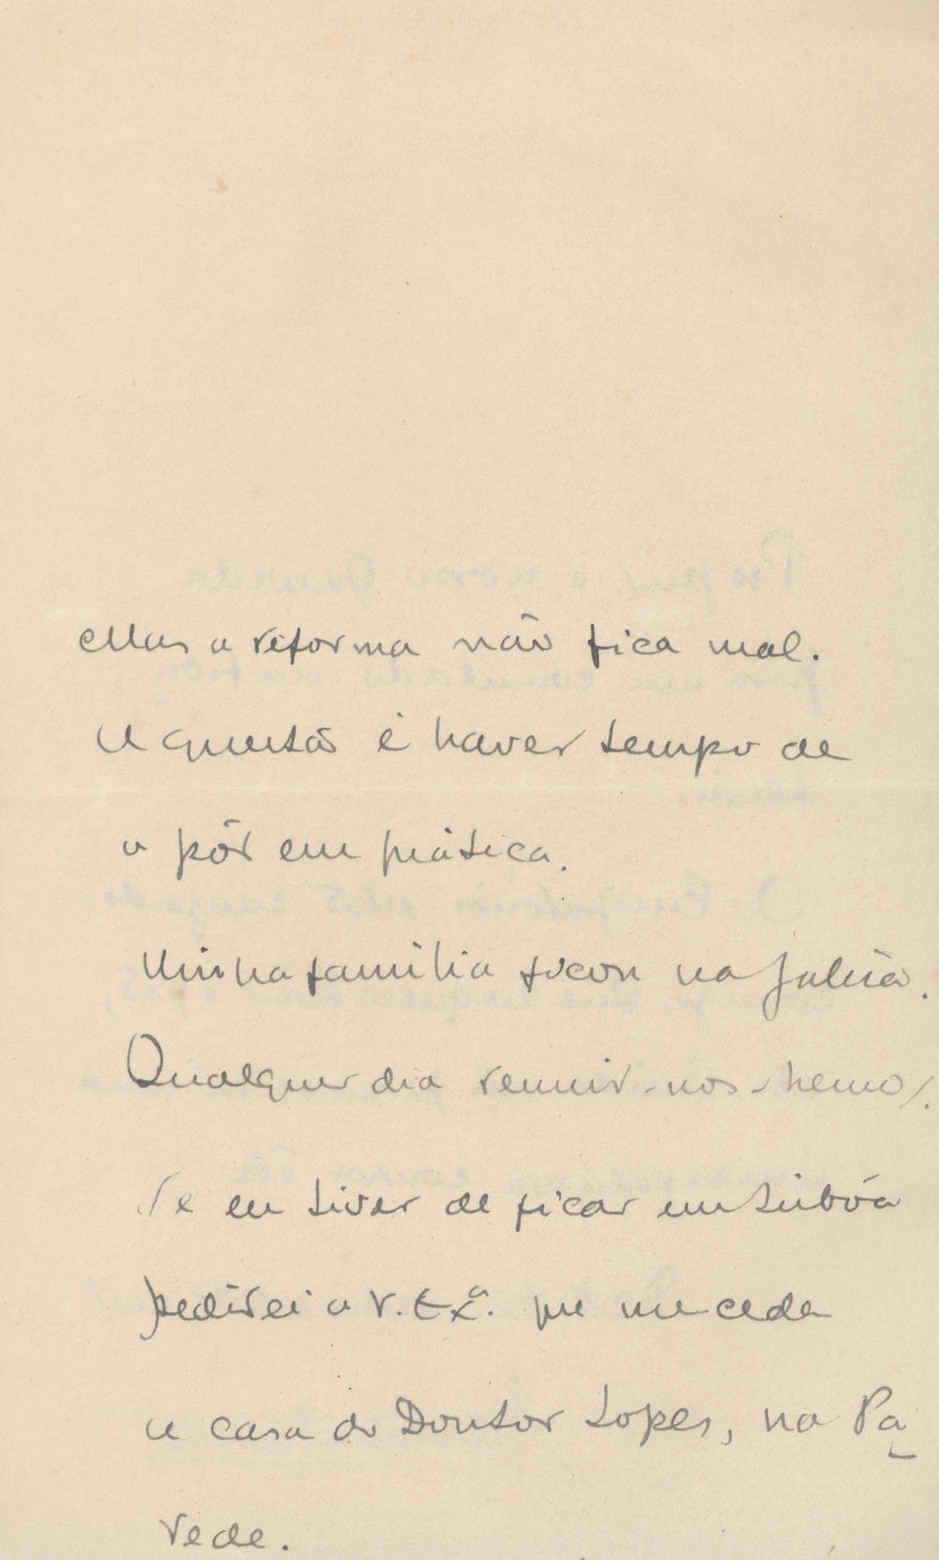 Mas a reforma não fica mal.
A questão é haver tempo de
a pôr em prática.
Minha familia ficou na
Qualquer dia reunir-nos-hemos.
Se eu tiver de ficar em Lisbôa
pedirei a V. Exª. que me ceda
a casa do Doutor Lopes, na Pa
rede.